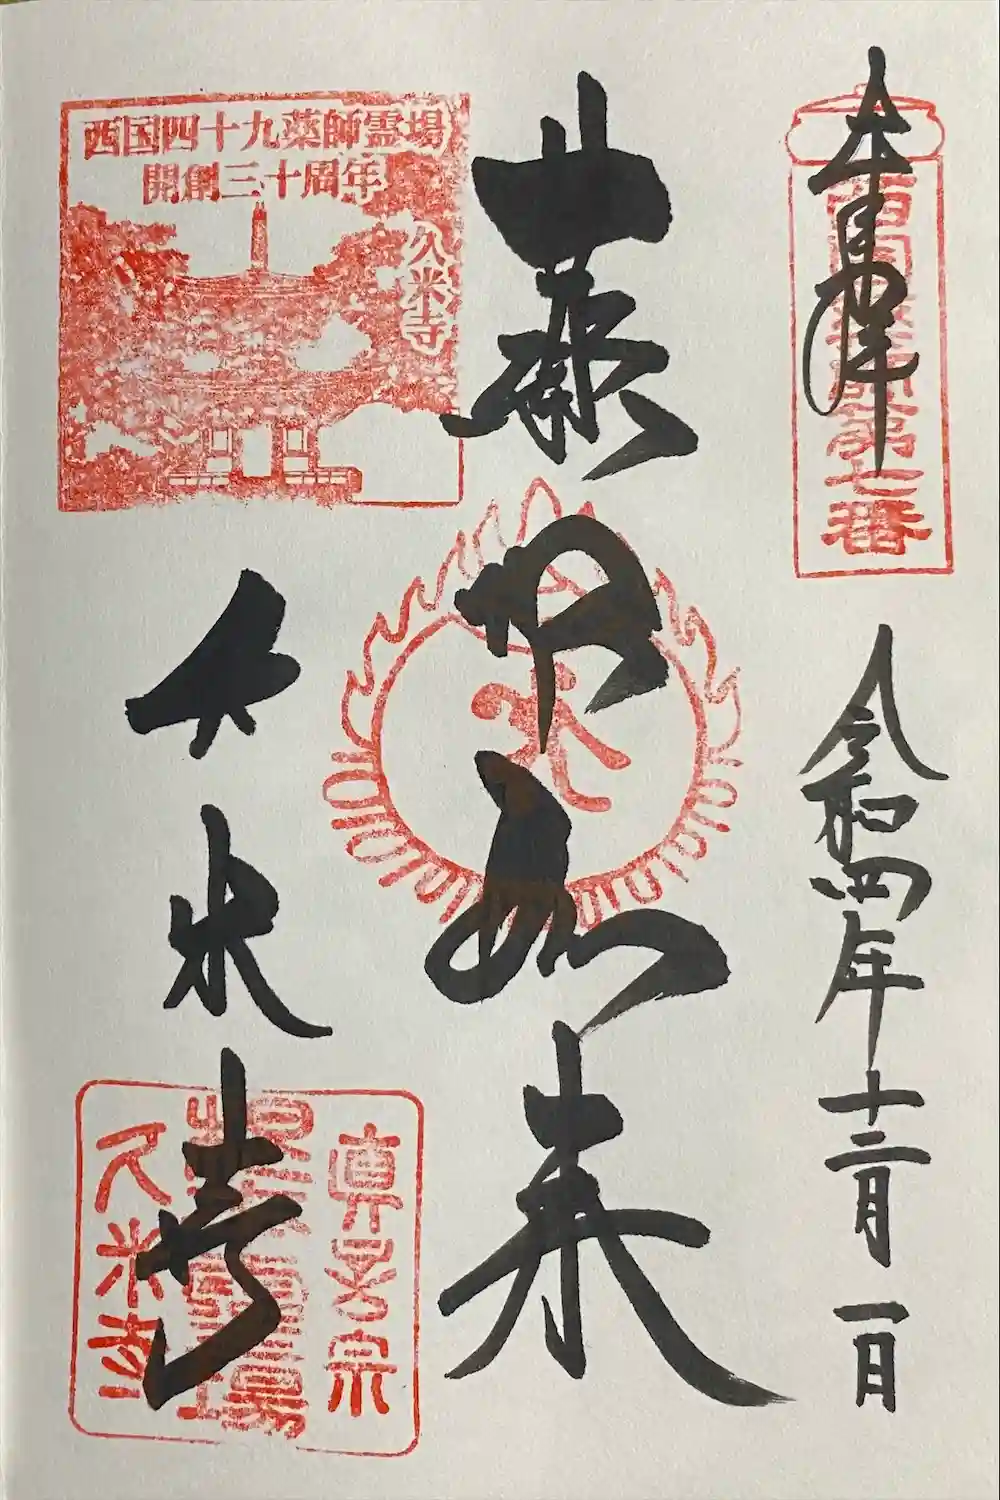 奉拝
西国薬師第七番
令和四年十二月一日
薬師如来
西国四十九薬師霊場
開創三十周年
久米寺
久米寺
真言宗
薬師霊場
久米寺